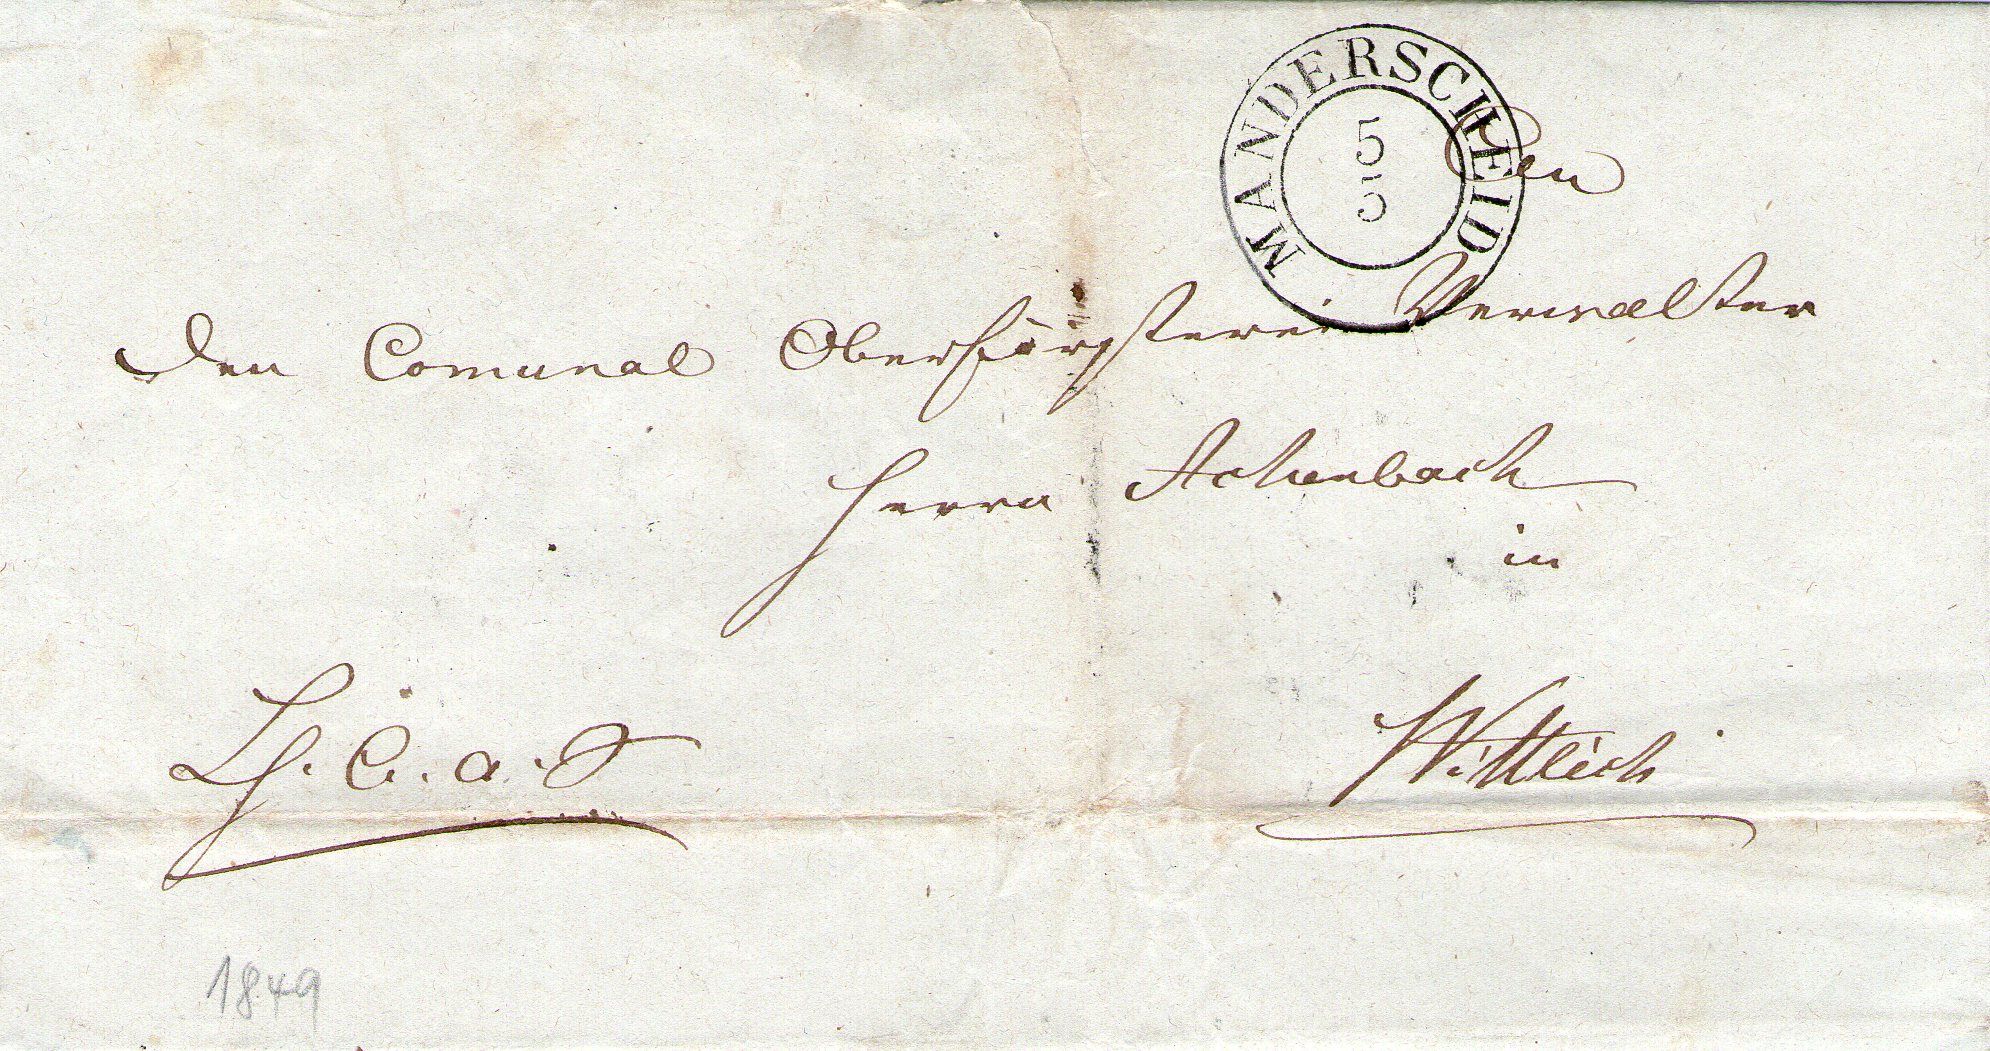 MANDERSCHEID
5
5
An
den Comunal Oberförsterei Verwalter
Herrn Achenbach
in
Wittlich
H. C. a. S
1849